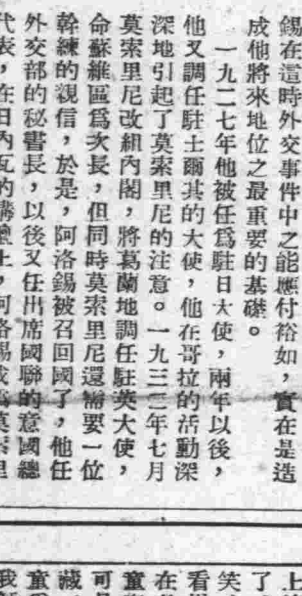 錫在這時外交事件中之能應付裕如，實在是造
成他將來地位之最重要的基礎。
一九二七年他被任爲駐日大使，兩年以後，
他又調任駐土爾其的大使，他在哥拉的活動深
深地引起了莫索里尼的注意。一九三二年七月
莫索里尼改組內閣，將葛蘭地調任駐英大使，
命蘇維區爲次長，但同時莫索里尼還需要一位
幹練的親信，於是，阿洛錫被召回國了，他任
外交部的秘書長，以後又任出席國聯的意國總
代表，在日內瓦的講壇上，阿洛錫成爲莫索里
上
了
笑
看
在
童
可
藏
童
我